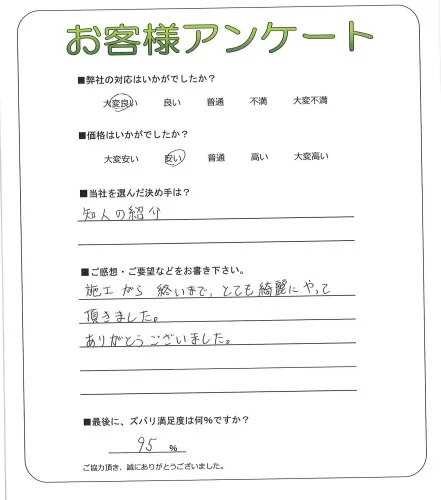 お客様アンケート
■弊社の対応はいかがでしたか？
大変良い 良い 普通 不満 大変不満
■価格はいかがでしたか？
大変安い 安い 普通 高い 大変高い
■当社を選んだ決め手は？
知人の紹介
■ご感想・ご要望などをお書き下さい。
施工から 終いまで、とても綺麗にやって
頂きました。
ありがとうございました。
■最後に、ズバリ満足度は何%ですか？
95 %
ご協力頂き、誠にありがとうございました。